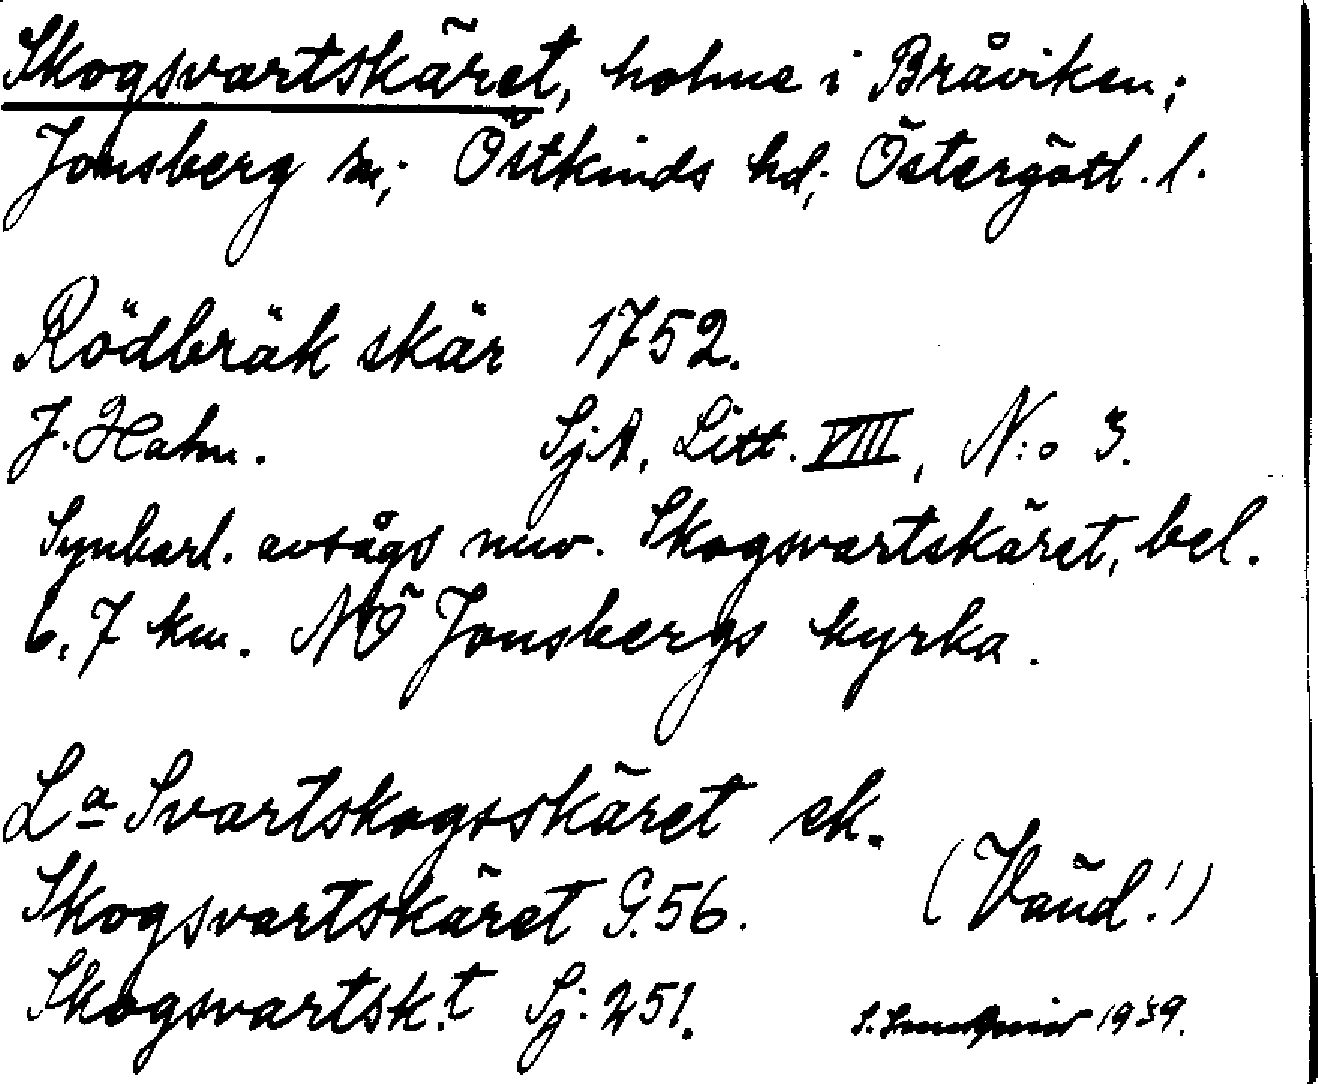 Skogsvartskäret, holme i Bråviken;
Jonsberg sn; Östkinds hd; Östergötl. l.
Rödbräk skär 1752.
J. Hahn. SjA, Litt. VIII, N:o 3.
Synbarl. avsågs nuv. Skogsvartskäret, bel.
6,7 km. NÖ Jonsbergs kyrka.
La Svartskogsskäret ek.
Skogsvartskäret G. 56. (Vänd!)
Skogsvartsk.t Sj: 251. 1939.